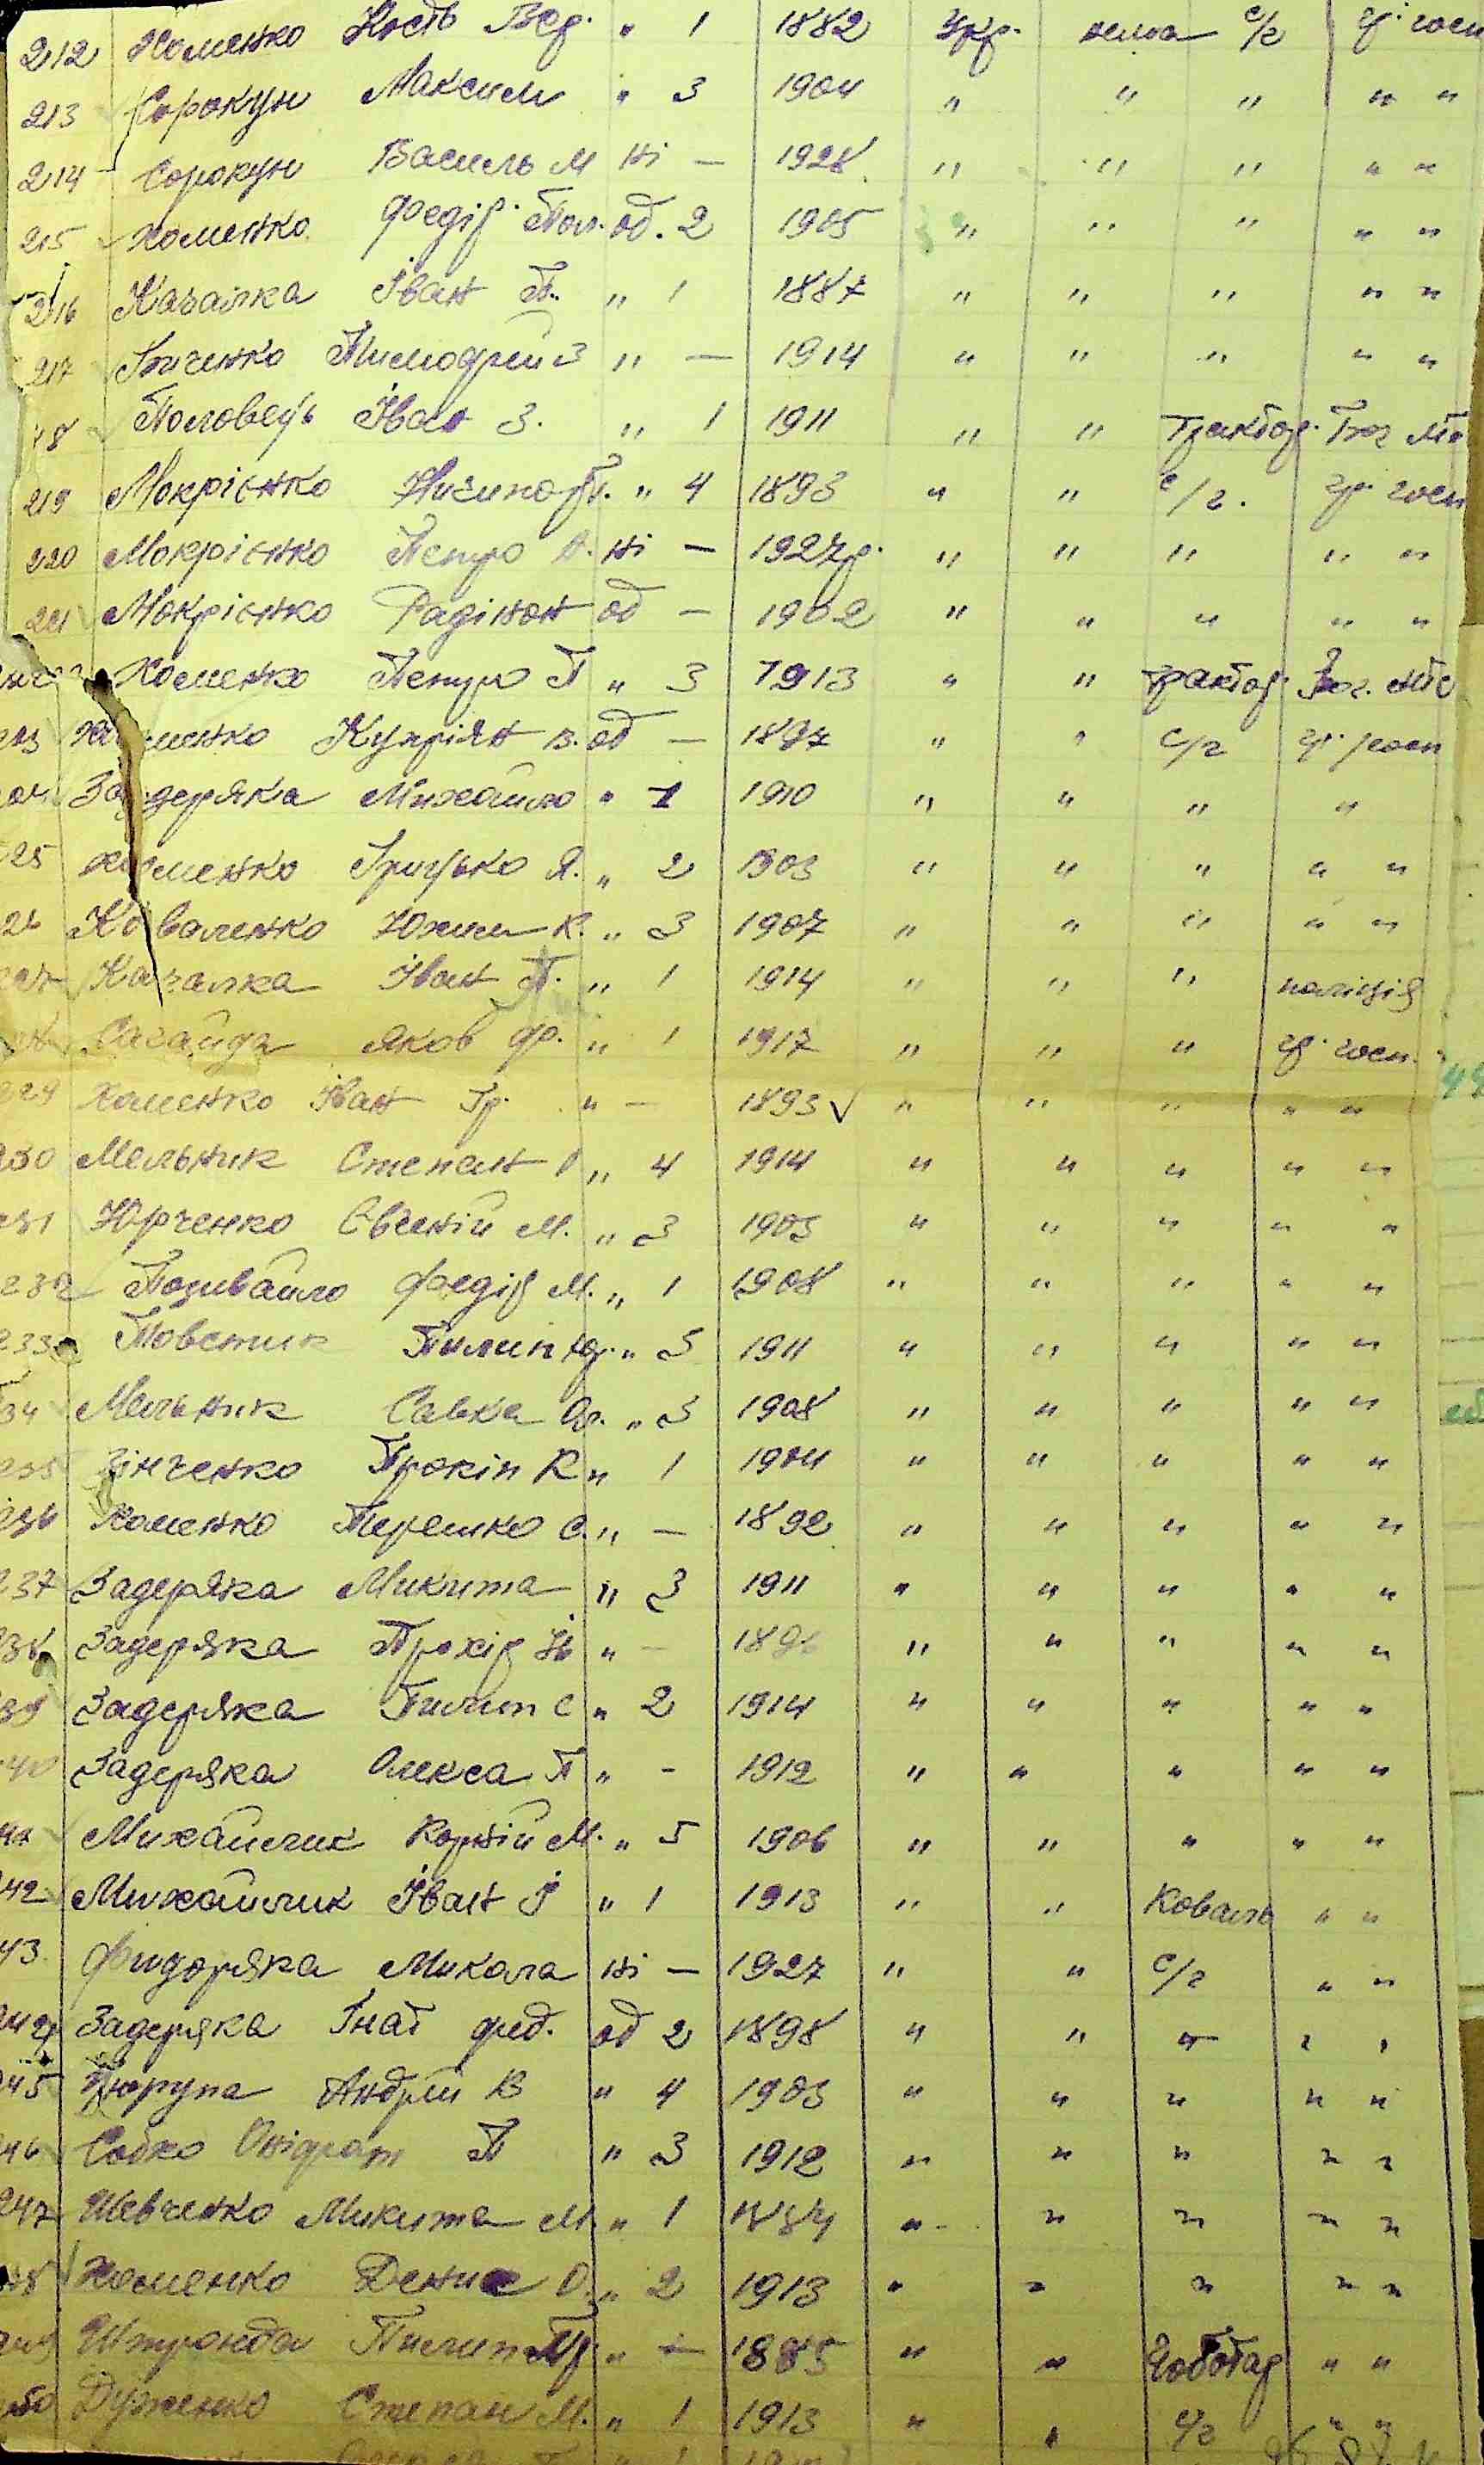 212 Хоменко Кость Вер. " 1 1882 Укр. нема с/г гр. госп
213 Сорокун Максим " 3 1904 " " " " "
214 Сорокун Василь М ні — 1928 " " " " "
215 Хоменко Федір Пол. од. 2 1905 " " " " "
216 Качалка Іван П. " 1 1887 " " " " "
217 Гриченко Тимофій З " — 1914 " " " " "
18 Половець Іван З. " 1 1911 " " Трактор.
219 Мокрієнко Ничипор " 4 1893 " " с/г. гр. госп
220 Мокрієнко Петро ні — 1927р. " " " " "
221 Мокрієнко Радінон од — 1902 " " " " "
Хоменко Петро П " 3 1913 " " трактор.
Хоменко Купріян В. од — 1897 " " с/г гр. госп
Задеряка Михайло " 1 1910 " " " "
25 Хоменко Грицько Я. " 2 1903 " " " " "
26 Коваленко Юхим К. " 3 1907 " " " " "
227 Качалка Іван П. " 1 1914 " " " поліція
Сагайда Яков Ф. " 1 1917 " " " гр. госп.
229 Хоменко Іван Гр. " — 1893 √ " " " " "
230 Мельник Степан О " 4 1914 " " " " "
231 Юрченко Євгеній М. " 3 1903 " " " " "
232 Позивайло Федір М. " 1 1908 " " " " "
233 Товстик Пилип " 3 1911 " " " " "
34 Мельник Савка Ол. " 3 1908 " " " " "
235 Зінченко Прокіп К " 1 1904 " " " " "
236 Хоменко Терешко С. " — 1892 " " " " "
237 Задеряка Микита " 3 1911 " " " " "
238 Задеряка Прохір " — 1896 " " " " "
39 Задеряка Пилип С " 2 1914 " " " " "
40 Задеряка Олекса П " - 1912 " " " " "
41 Михайлик Корній М. " 5 1906 " " " " "
42 Михайлик Іван І " 1 1913 " " Коваль " "
43. Фидоряка Микола ні — 1927 " " с/г " "
244 Задеряка Гнат Фед. од 2 1898 " " " " "
45 Цюрупа Андрій В " 4 1903 " " " " "
46 Собко П " 3 1912 " " " " "
247 Шевченко Микита М. " 1 1884 " " " " "
48 Хоменко Денис О. " 2 1913 " " " " "
249 Штронда Пилип " — 1885 " " Чоботар " "
250 Дуженко Степан М. " 1 1913 " " с/г " "